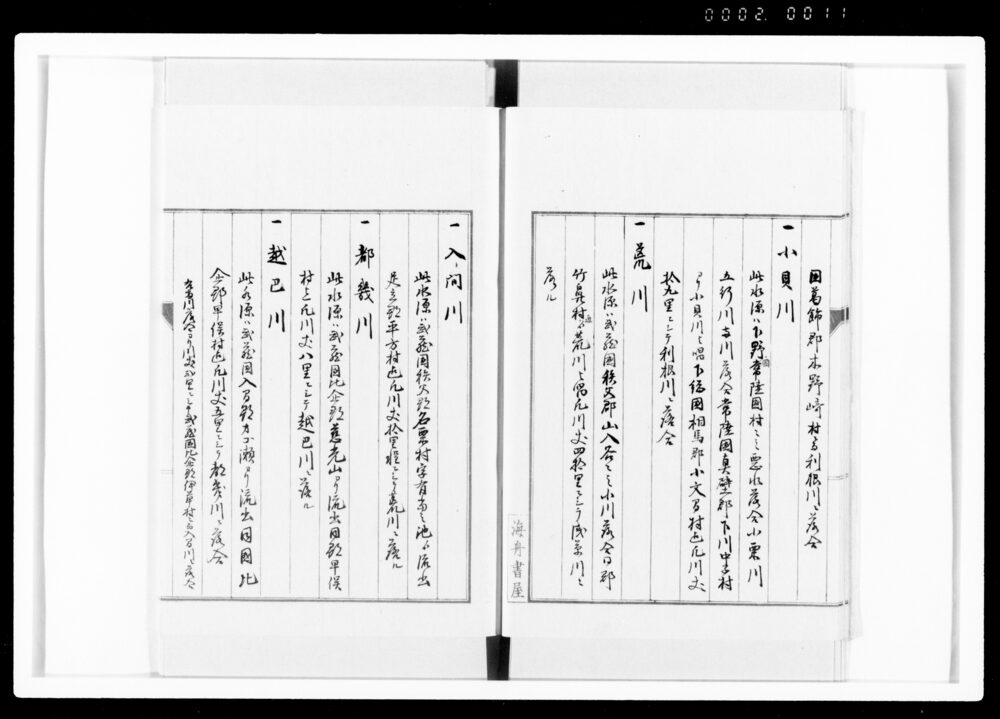 0002. 0011
国葛飾郡木野崎村ニ而利根川ニ落合
一小貝川
此水源ハ下野国常陸国村々之悪水落合小栗川
五行川両川落合常陸国真壁郡下川中子村
ゟ小貝川と唱下総国相馬郡小文間村迄凡川丈
拾九里ニシテ利根川ニ落合
一荒川
此水源ハ武蔵国秩父郡山入谷々之小川落合同郡
竹鼻村ゟ荒川と唱凡川丈四拾里ニシテ浅草川ニ
落ル
海舟書屋
一入間川
此水源ハ武蔵国秩父郡名栗村字有間之池ゟ流出
足立郡平方村迄凡川丈拾里程ニシテ荒川ニ落ル
一都幾川
此水源ハ武蔵国比企郡慈光山ゟ流出同郡早俣
村迄凡川丈八里ニシテ越巴川ニ落ル
一越巴川
此水源ハ武蔵国入間郡カコ瀬ゟ流出同国比
企郡早俣村迄凡川丈五里ニシテ都幾川ニ落合
川落合ゟ川丈里ニシテ武蔵国比企郡伊草村ニ而入間川ニ落合